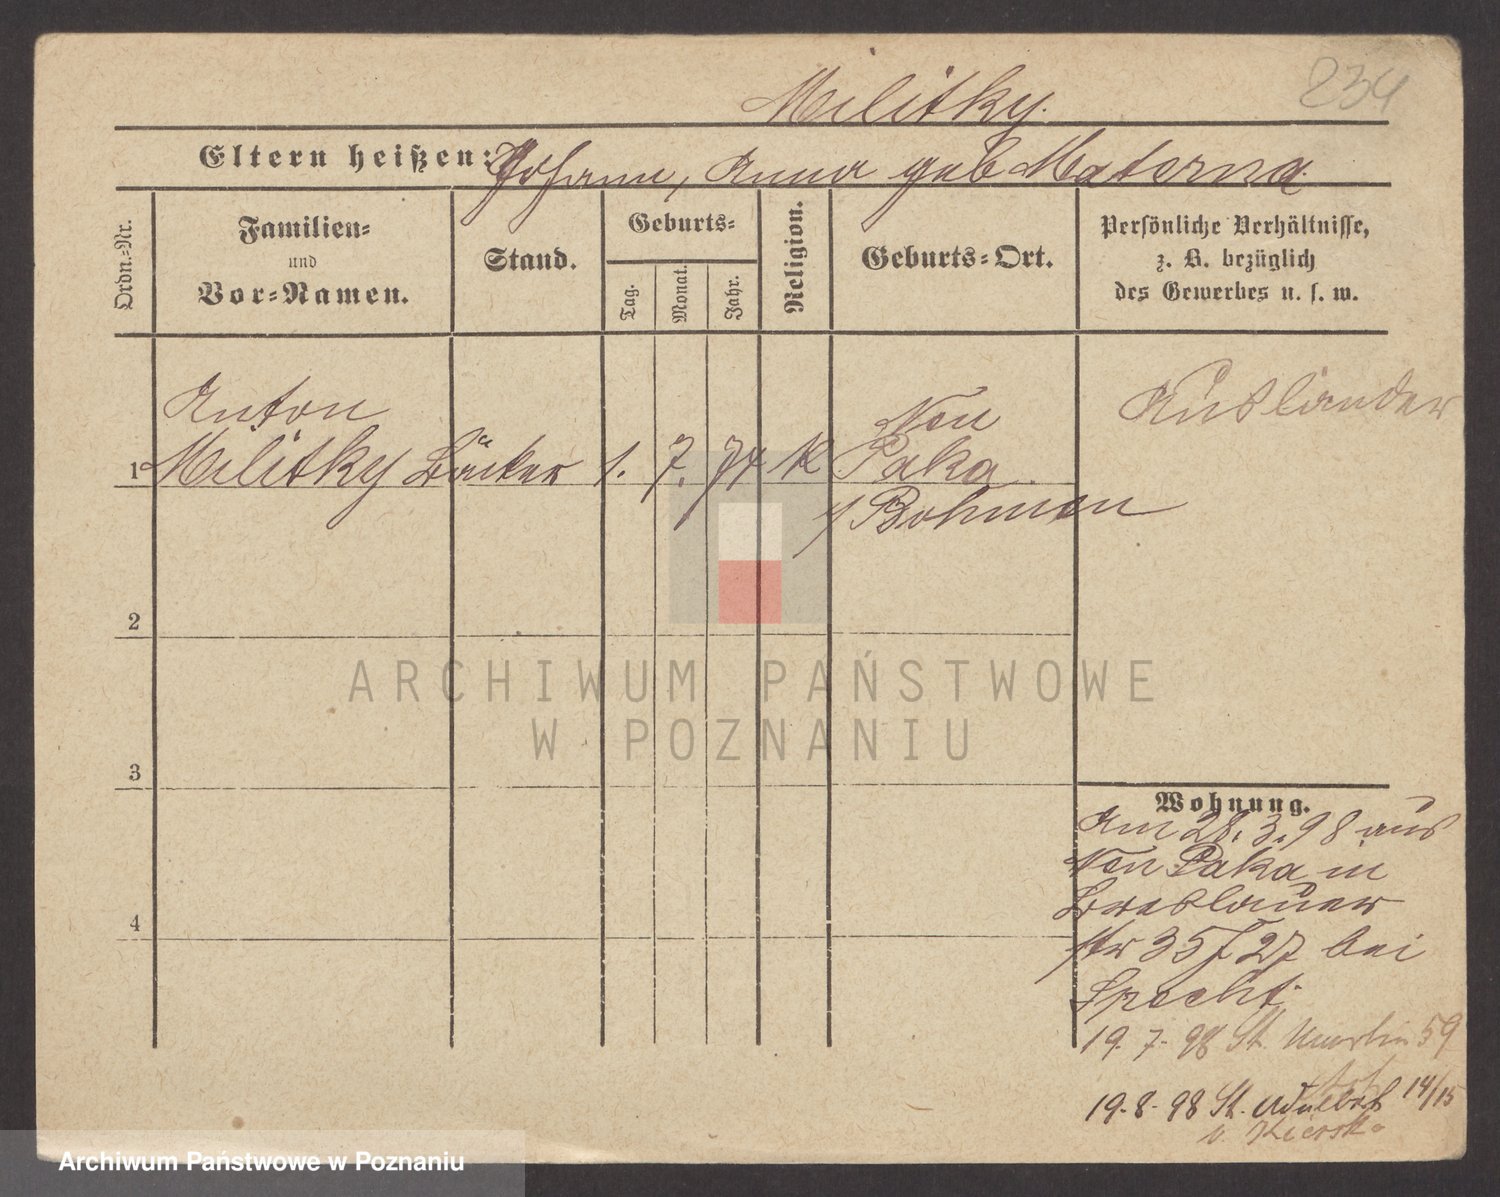 234
Militky.
Eltern heißen: Johann, Anna geb Materna
Ordn.-Nr.
Familien-
und
Vor-Namen.
Stand.
Geburts-
Tag.
Monat.
Jahr.
Religion.
Geburts-Ort.
Persönliche Verhältnisse,
z. B. bezüglich
des Gewerbes u. s. w.
Anton
1 Militky Bäcker 1. 7. 74 K
Neu
Paka
/ Bohmen
Ausländer
2
3
4
Wohnung.
Am 28.3.98 aus
Neu Paka in
Breslauer
str 35/27 bei
Specht.
19.7.98 St. Martin 59
19.8.98 St. Adalbert 14/15
ARCHIWUM PAŃSTWOWE
W POZNANIU
Archiwum Państwowe w Poznaniu